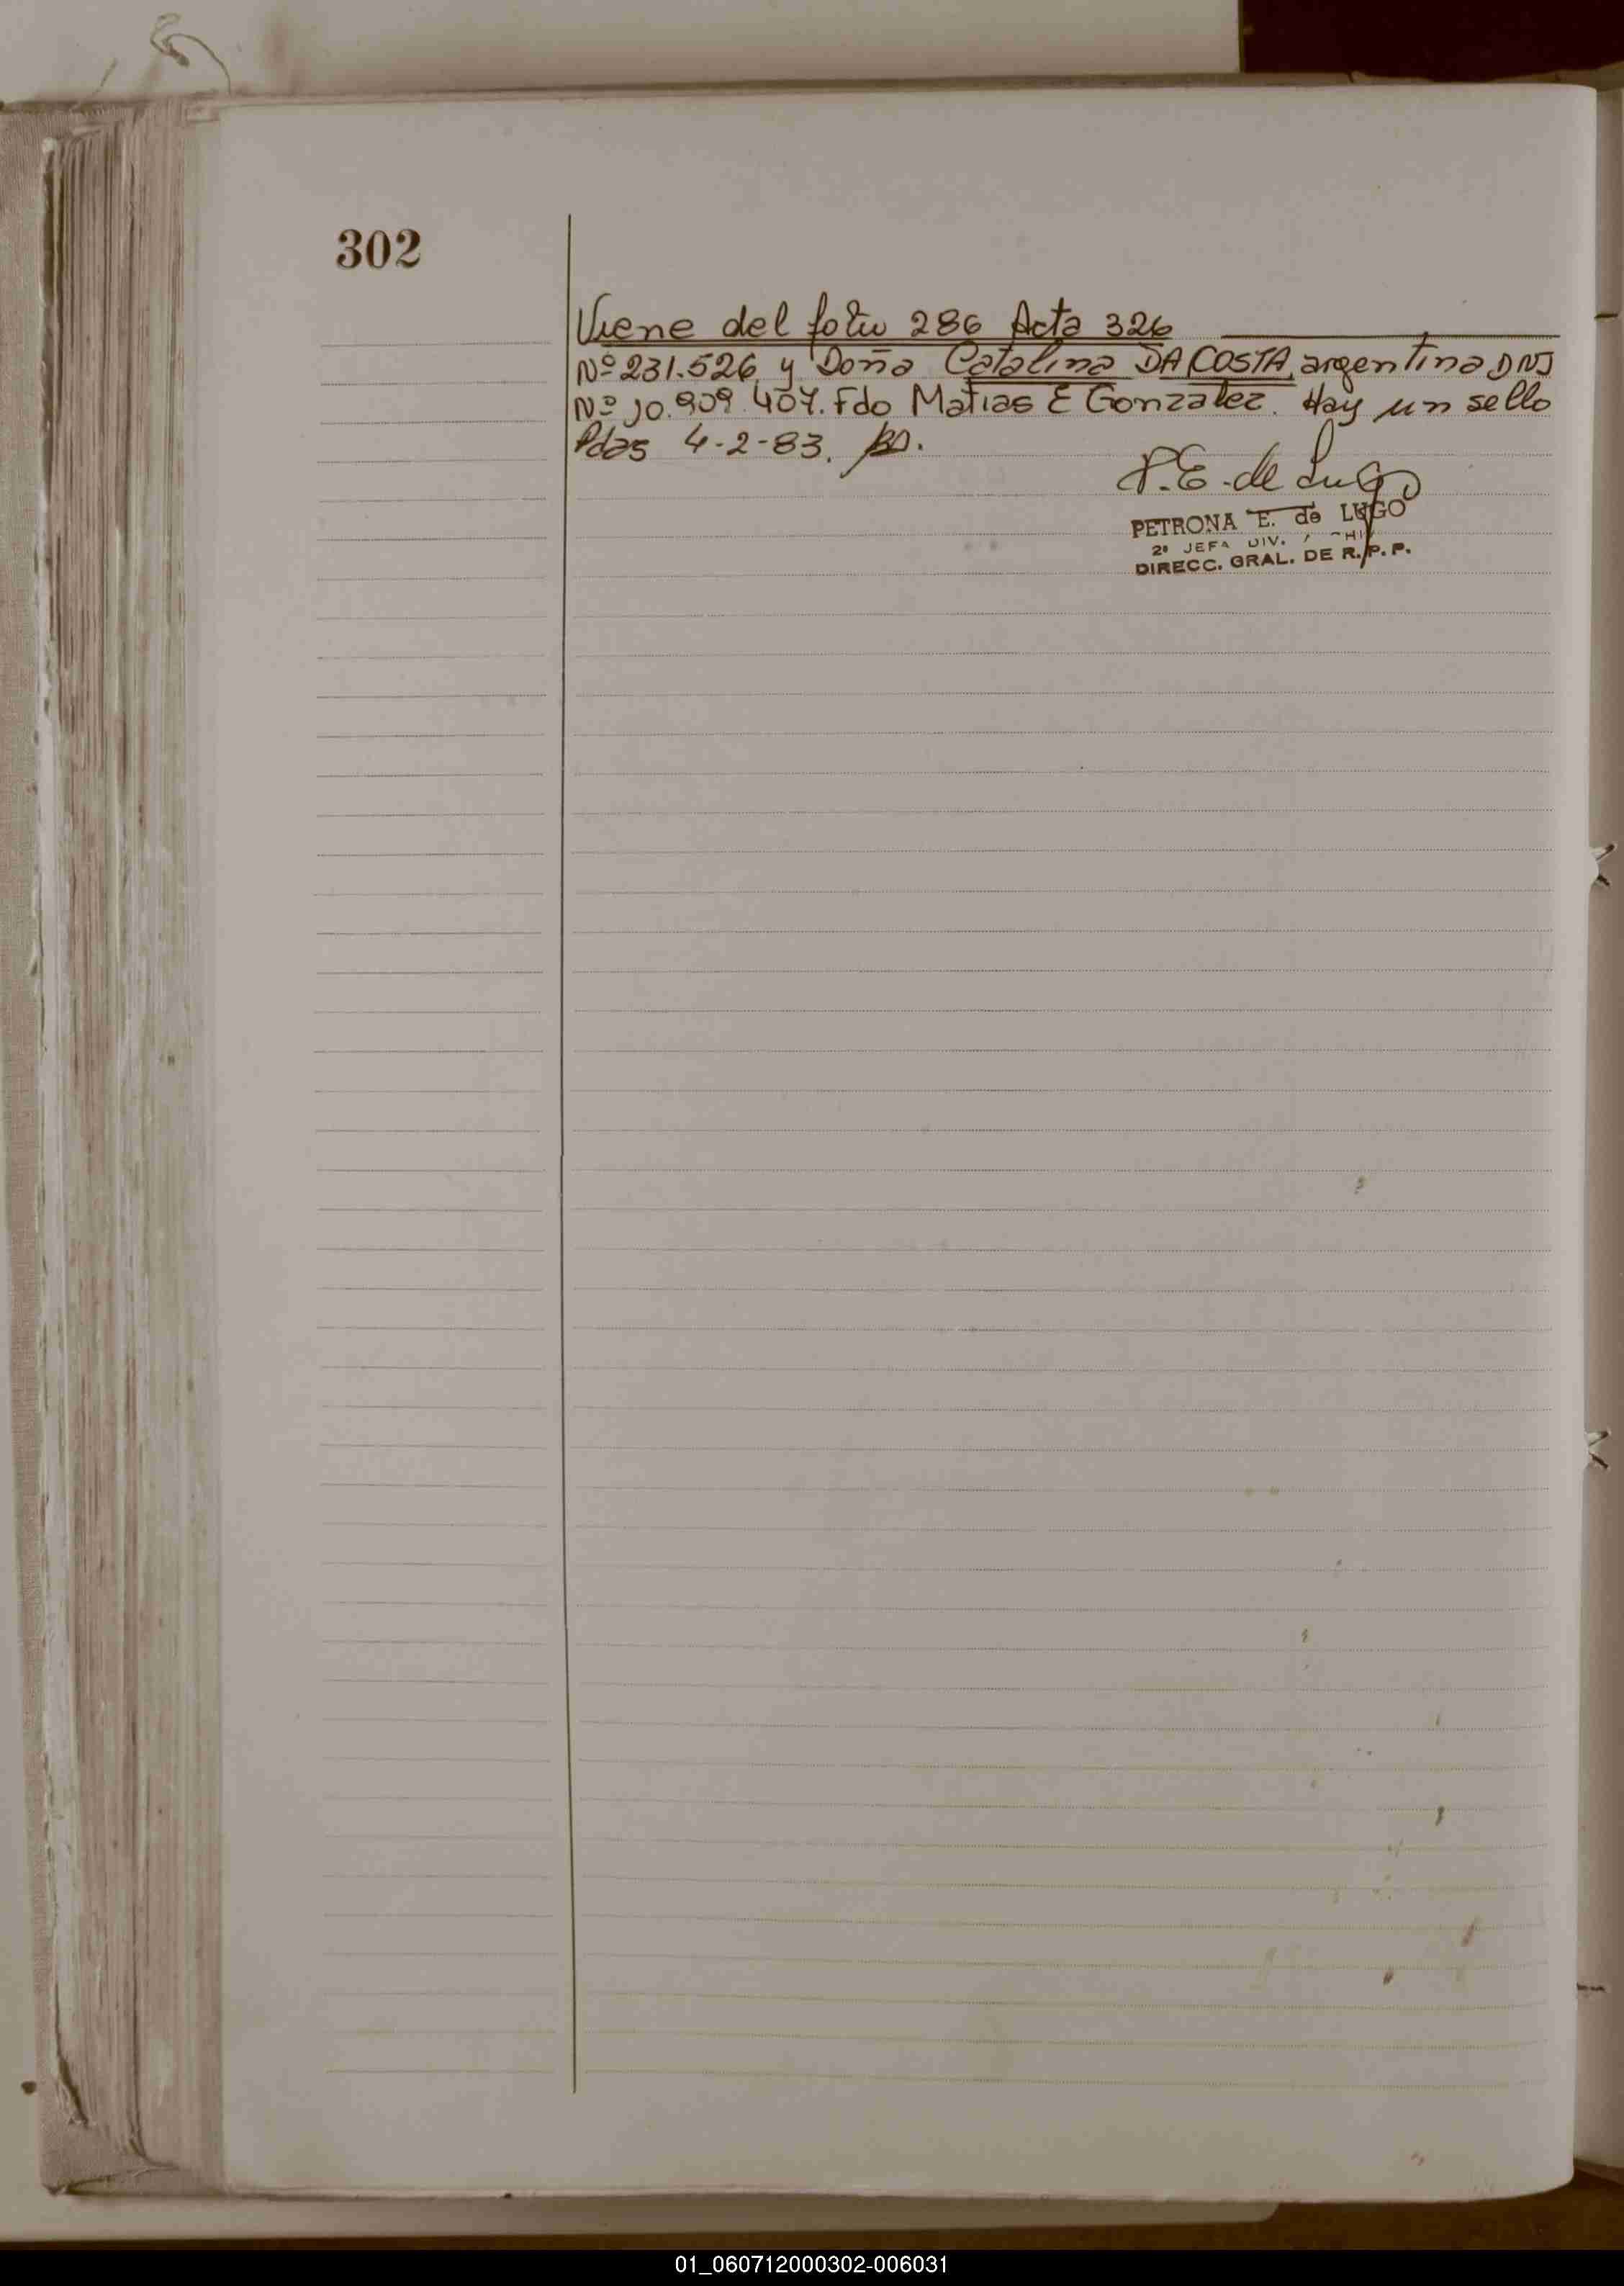 302
Viene del folio 286 Acta 326
Nº 231.526 y Doña Catalina DA COSTA, argentina DNI
Nº 10.909.407. Fdo Matias E Gonzalez. Hay un sello
Pdas 4-2-83.
P.E. de Lugo
PETRONA E. de LUGO
2º JEFA DIV.
DIRECC. GRAL. DE R.P.P.
01_060712000302-006031